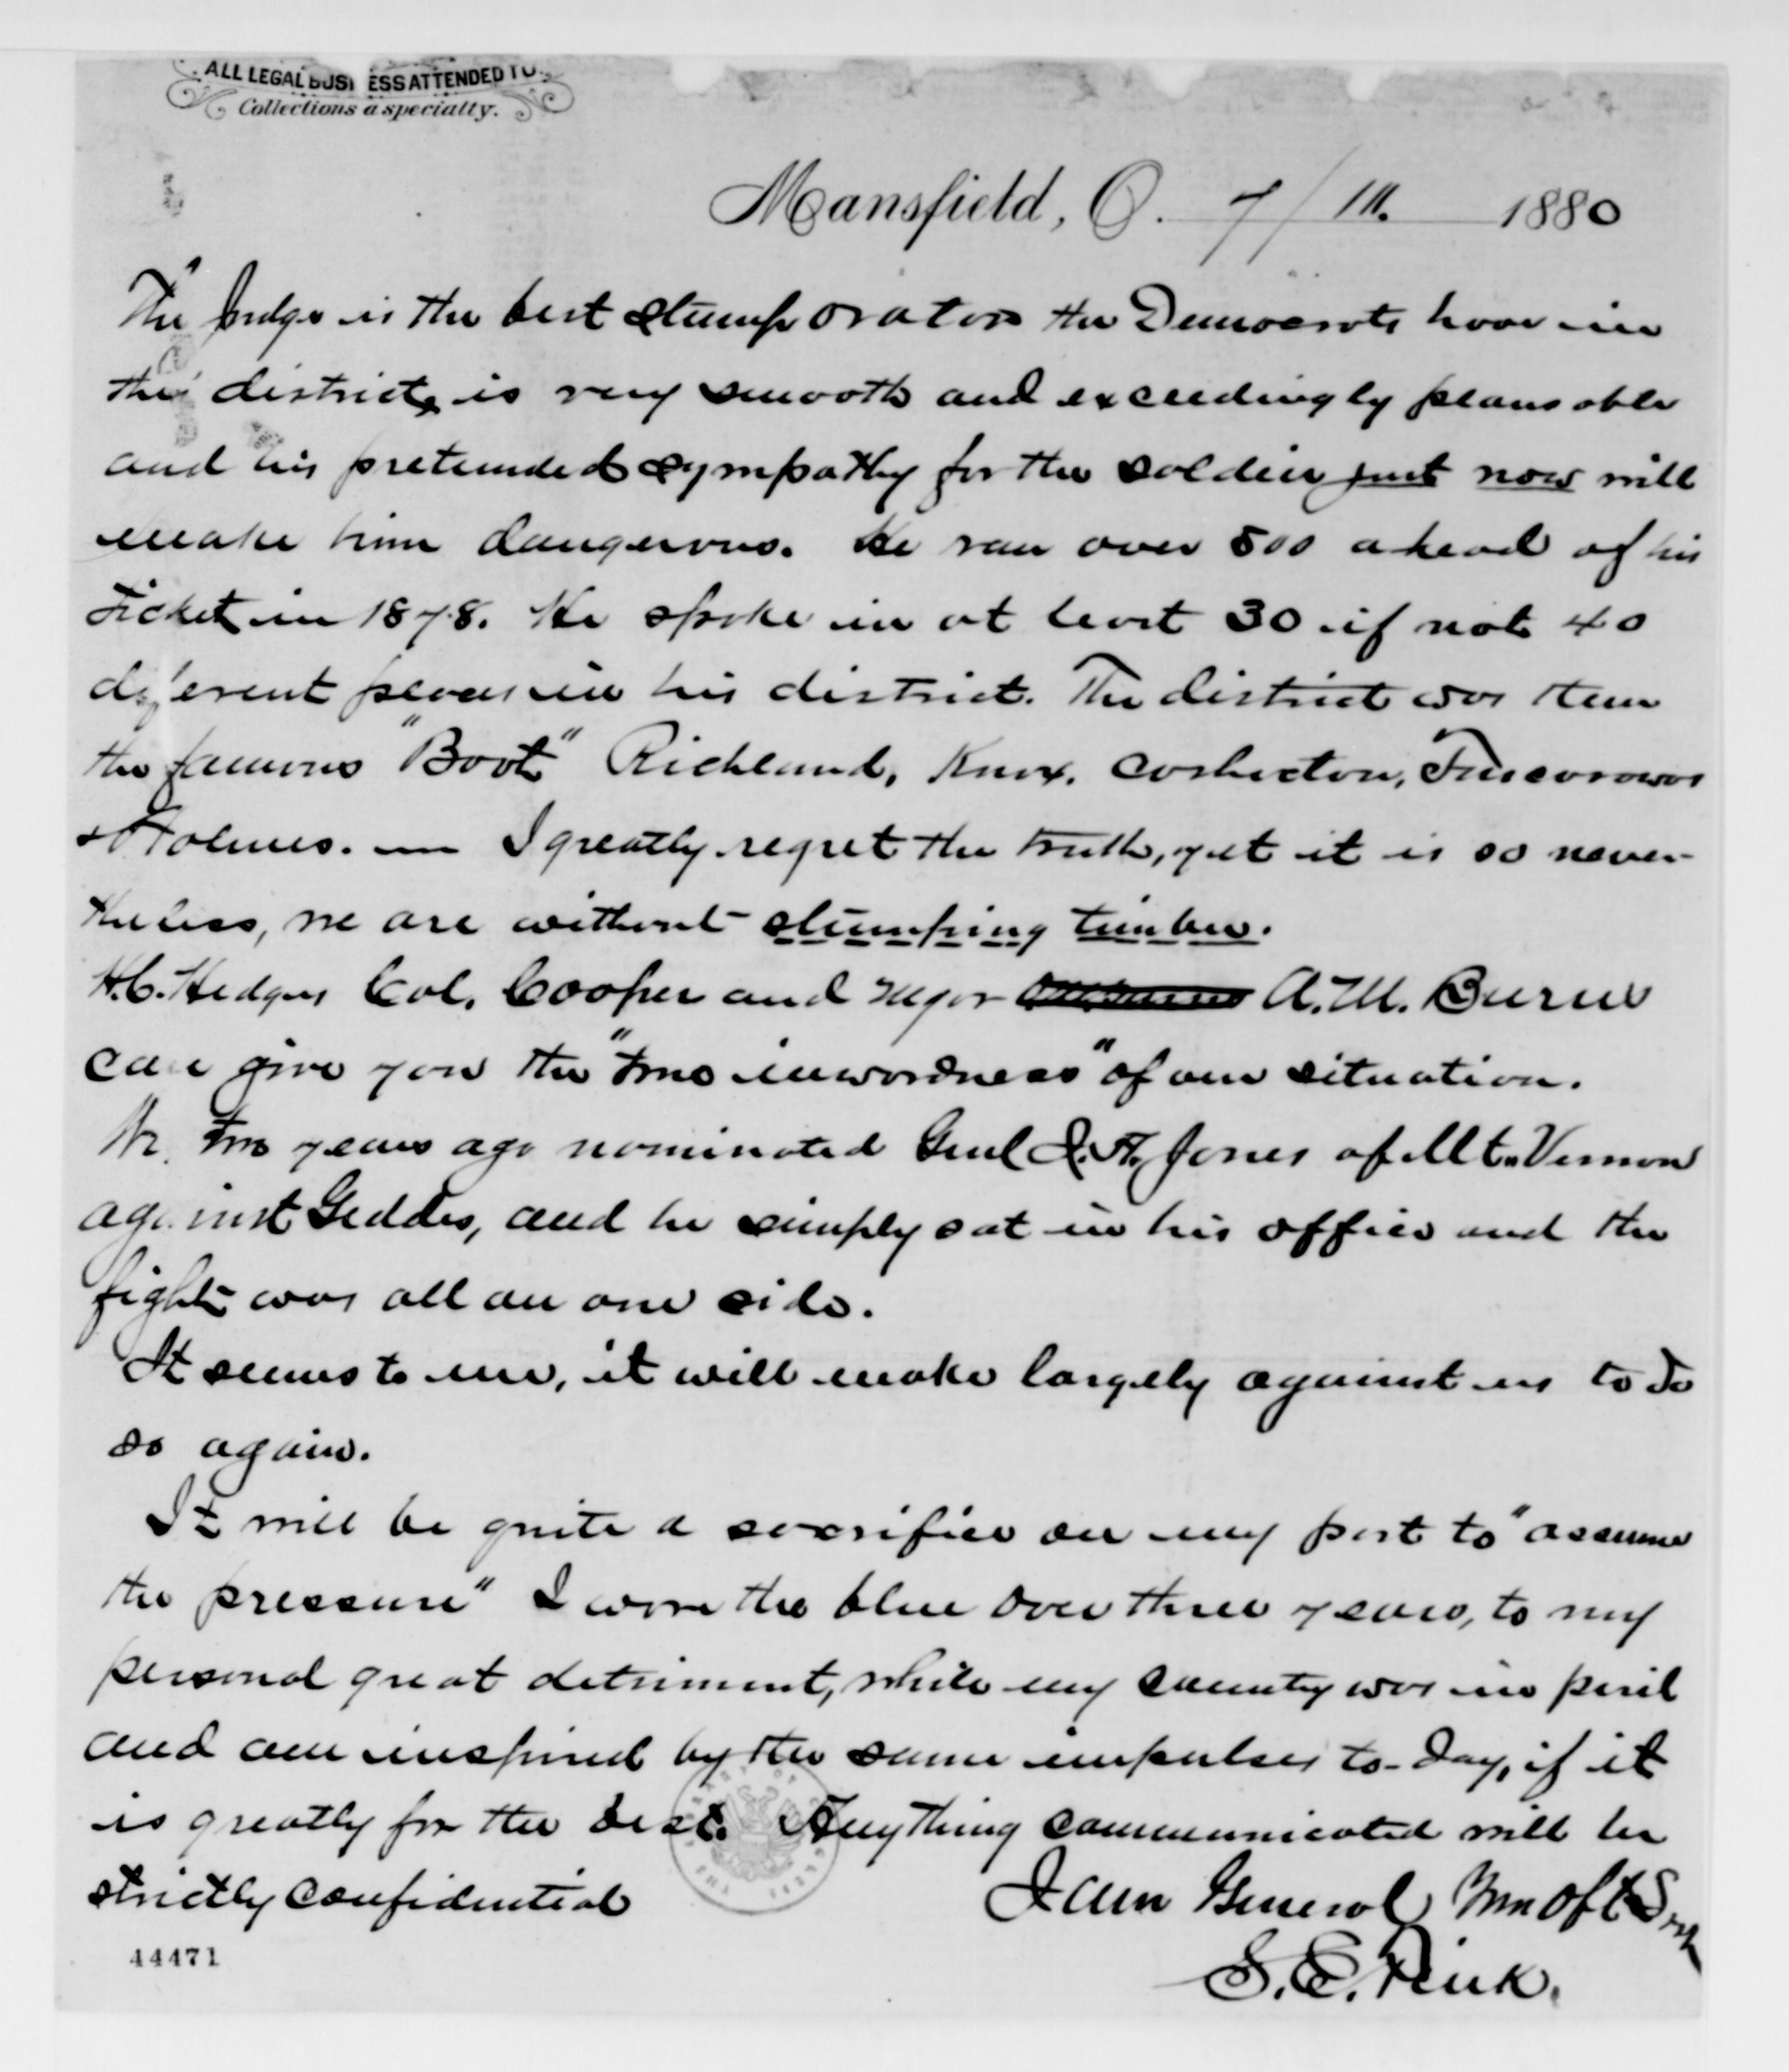 ALL LEGAL BUSI ESS ATTENDED TO.
Collections a specialty.
Mansfield, O. 7/111. 1880
The Judge is the best stump orator the Democrats have in
the district, is very smooth and exceedingly plausable
and his pretended sympathy for the soldier just now will
make him dangerous. He ran over 500 ahead of his
ticket in 1878. He spoke in at least 30 if not 40
different places in his district. The district was then
the famous "Boot" Richland, Knox, Coshocton, Tuscarawas
+ Holmes. — I greatly regret the truth, yet it is so never-
theless, we are without stumping timber.
H.C. Hedges Col. Cooper and Major A.M. Burns
can give you the "true inwardness" of our situation.
We two years ago nominated Genl G.A. Jones of Mt. Vernon
against Geddes, and he simply sat in his office and the
fight was all on one side.
It seems to me, it will make largely against us to do
so again.
It will be quite a sacrifice on my part to "assume
the pressure" I wore the blue over three years, to my
personal great detriment, while my country was in peril
and am inspired by the same impulses to-day, if it
is greatly for the best. Anything communicated will be
strictly confidential
I am General Yrs
S.E. Fink.
44471